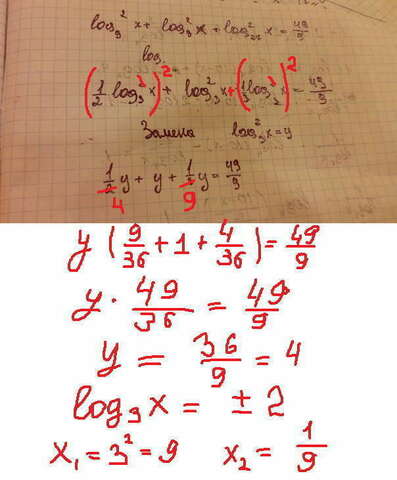 log₉² x + log₃² x + log₂₇² x = 49/9
log₃
(1/2 log₃² x)² + log₃² x + (1/3 log₃² x)² = 49/9
Замена log₃² x = y
1/2 y + y + 1/3 y = 49/9
4 9
y (9/36 + 1 + 4/36) = 49/9
y · 49/36 = 49/9
y = 36/9 = 4
log₃ x = ± 2
x₁ = 3² = 9 x₂ = 1/9